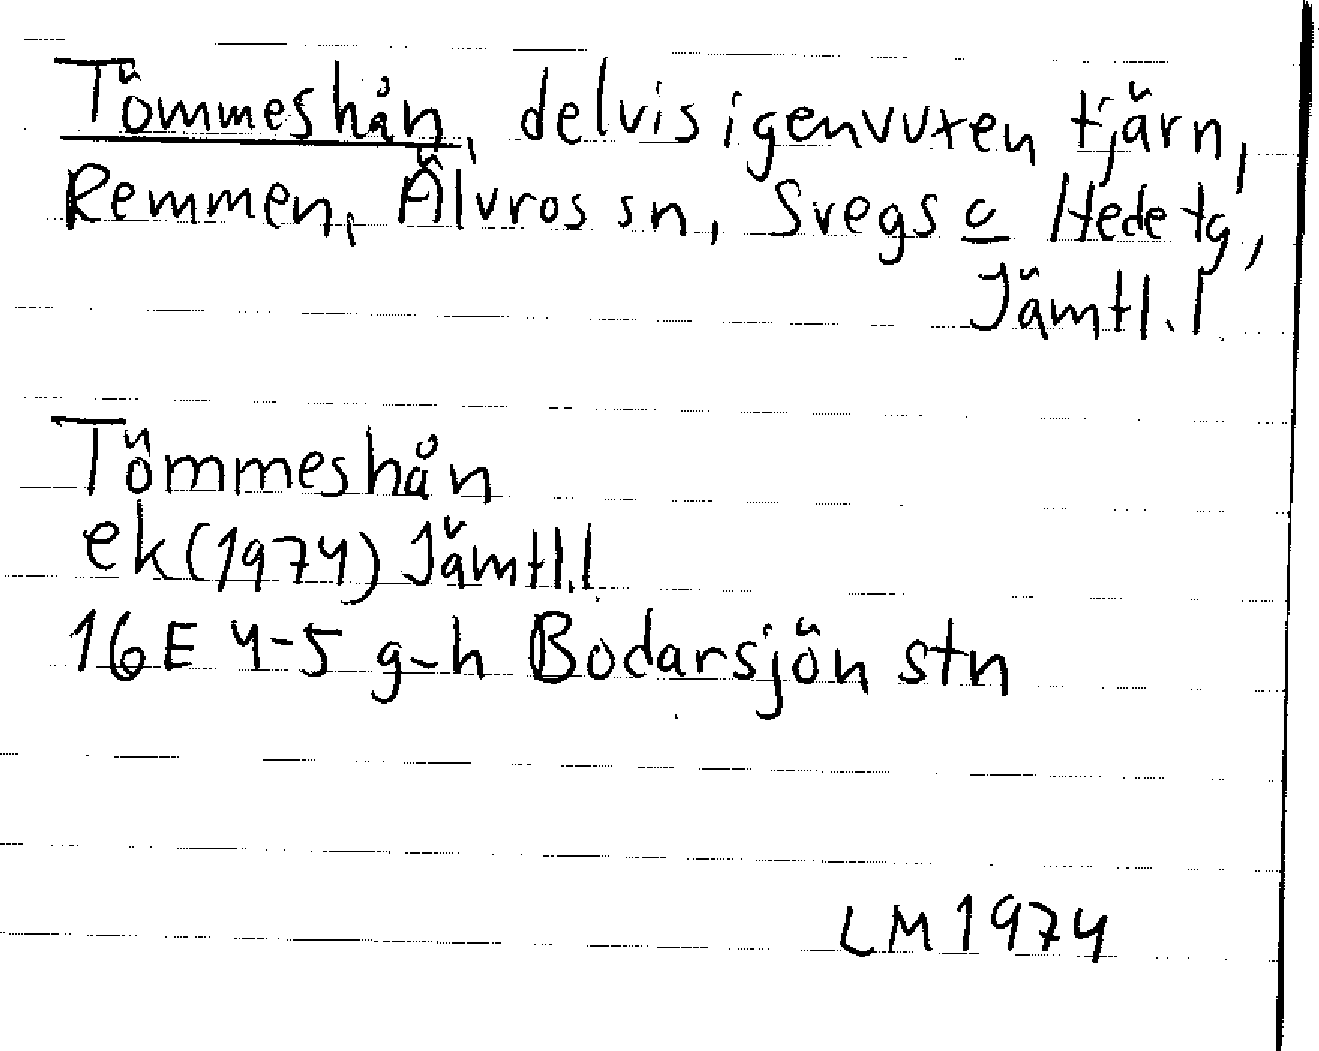 Tömmeshån, delvis igenvuxen tjärn,
Remmen, Älvros sn, Svegs o Hede tg,
Jämtl. l
Tömmeshån
ek (1974) Jämtl. l
16E 4-5 g-h Bodarsjön stn
LM 1974